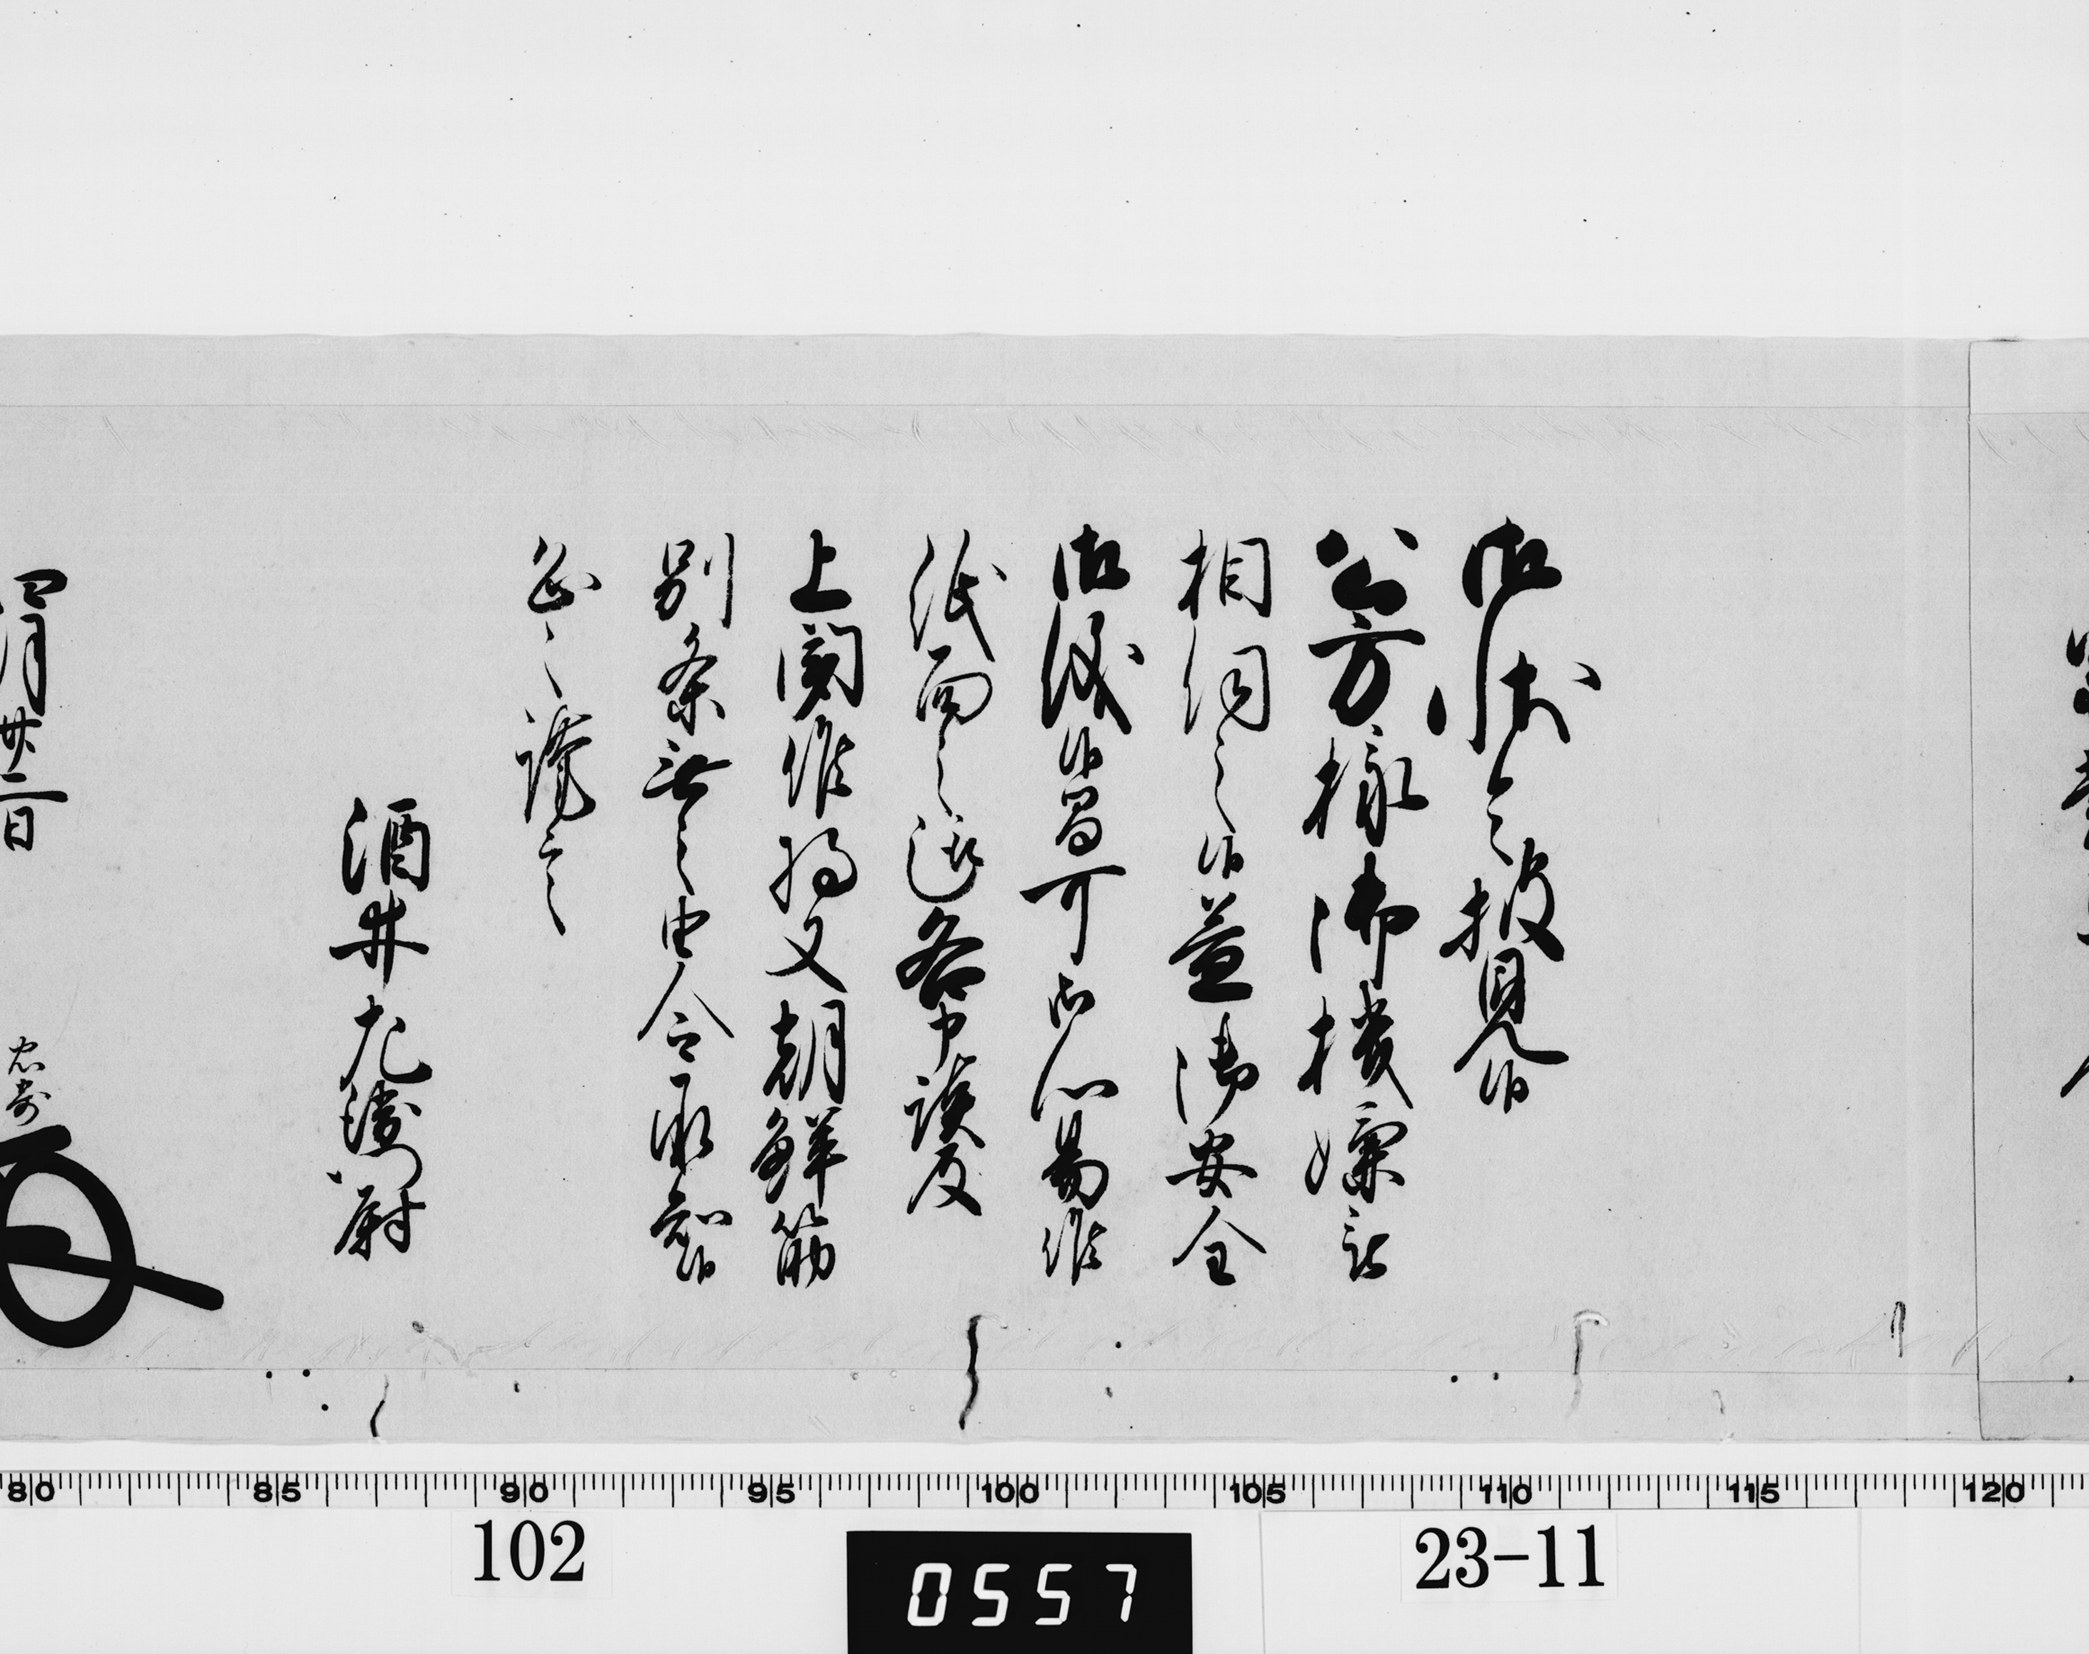 御状令披見候
公方様御機嫌被
相伺之候益御安全
御儀候間可御心易候
紙面之趣各申談及
上聞候将又朝鮮筋
別条無之由令承知候
恐々謹言
酒井左衛門尉
四月廿二日
忠寄
80 85 90 95 100 105 110 115 120
102
0557
23-11